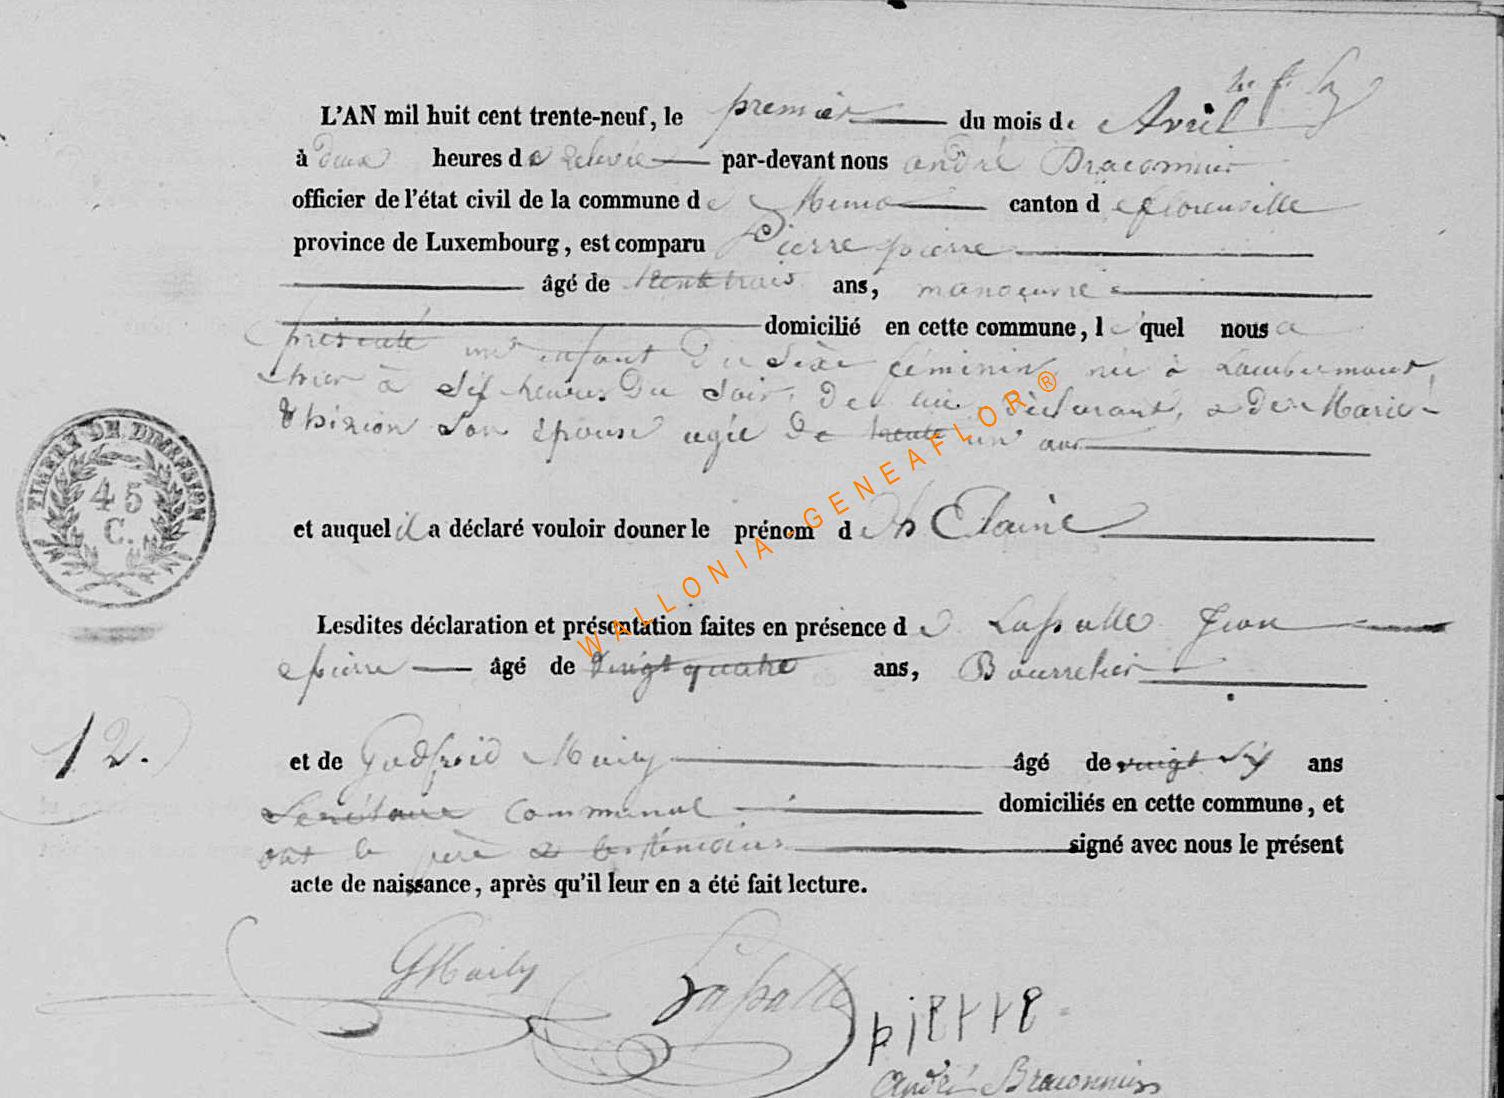 L'AN mil huit cent trente-neuf, le premier du mois de Avril
à deux heures de relevée par-devant nous andré Braconnier
officier de l'état civil de la commune de Muno canton de florenville
province de Luxembourg, est comparu Pierre pierre
âgé de trente trois ans, manoeuvre
domicilié en cette commune, lequel nous a
présenté un enfant du sexe féminin, née à Lambermont
hier à six heures du soir, de lui déclarant, & de Marie
Thirion son épouse agée de trente un ans
et auquel il a déclaré vouloir donner le prénom d
Lesdites déclaration et présentation faites en présence de Lassalle Jean
pierre âgé de vingt quatre ans, Bourrelier
12.
et de Godfroid Maily âgé de vingt six ans
Secrétaire communal domiciliés en cette commune, et
ont le père & les témoins signé avec nous le présent
acte de naissance, après qu'il leur en a été fait lecture.
GMaily Lassalle pierre
andré Braconnier
TIMBRE DE DIMENSION
45
C.
WALLONIA-GENEAFLOR®